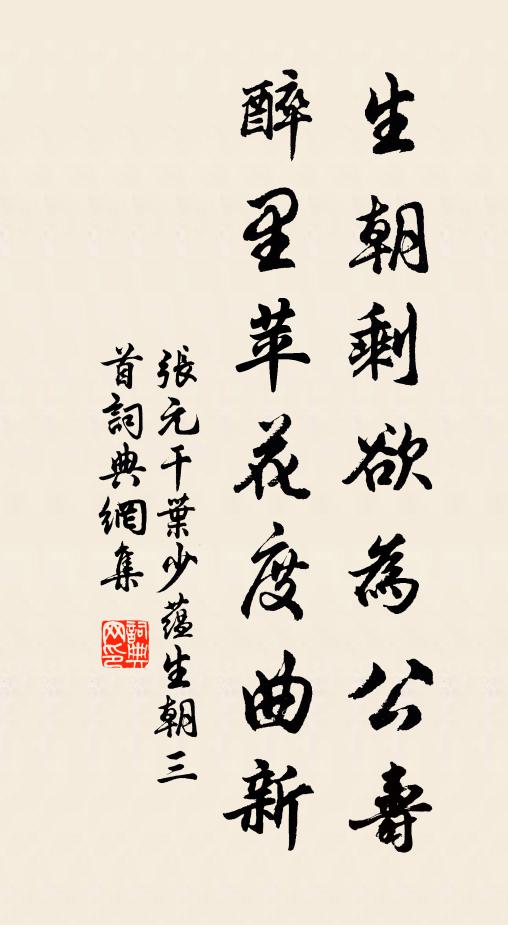 生朝剩欲為公壽
醉里苹花度曲新
張元干葉少蕴生朝三
首詞典網集
詞典
网印